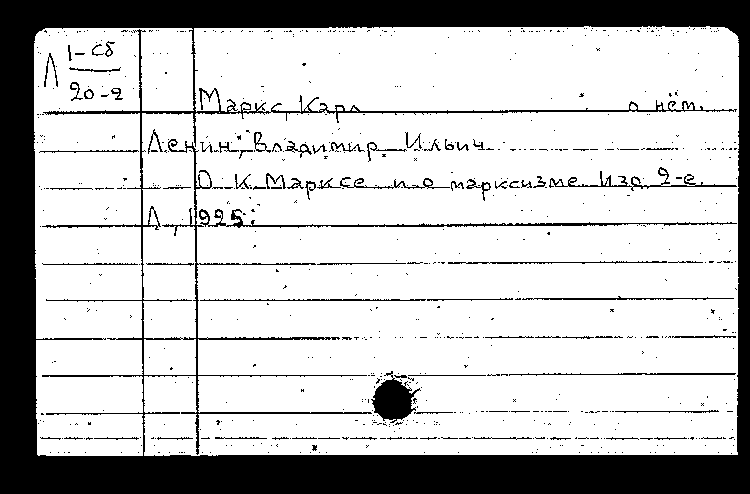 Л 1-сб
20-2
Маркс, Карл о нём.
Ленин, Владимир Ильич
О К. Марксе и о марксизме. Изд. 2-е.
Л., 1925.